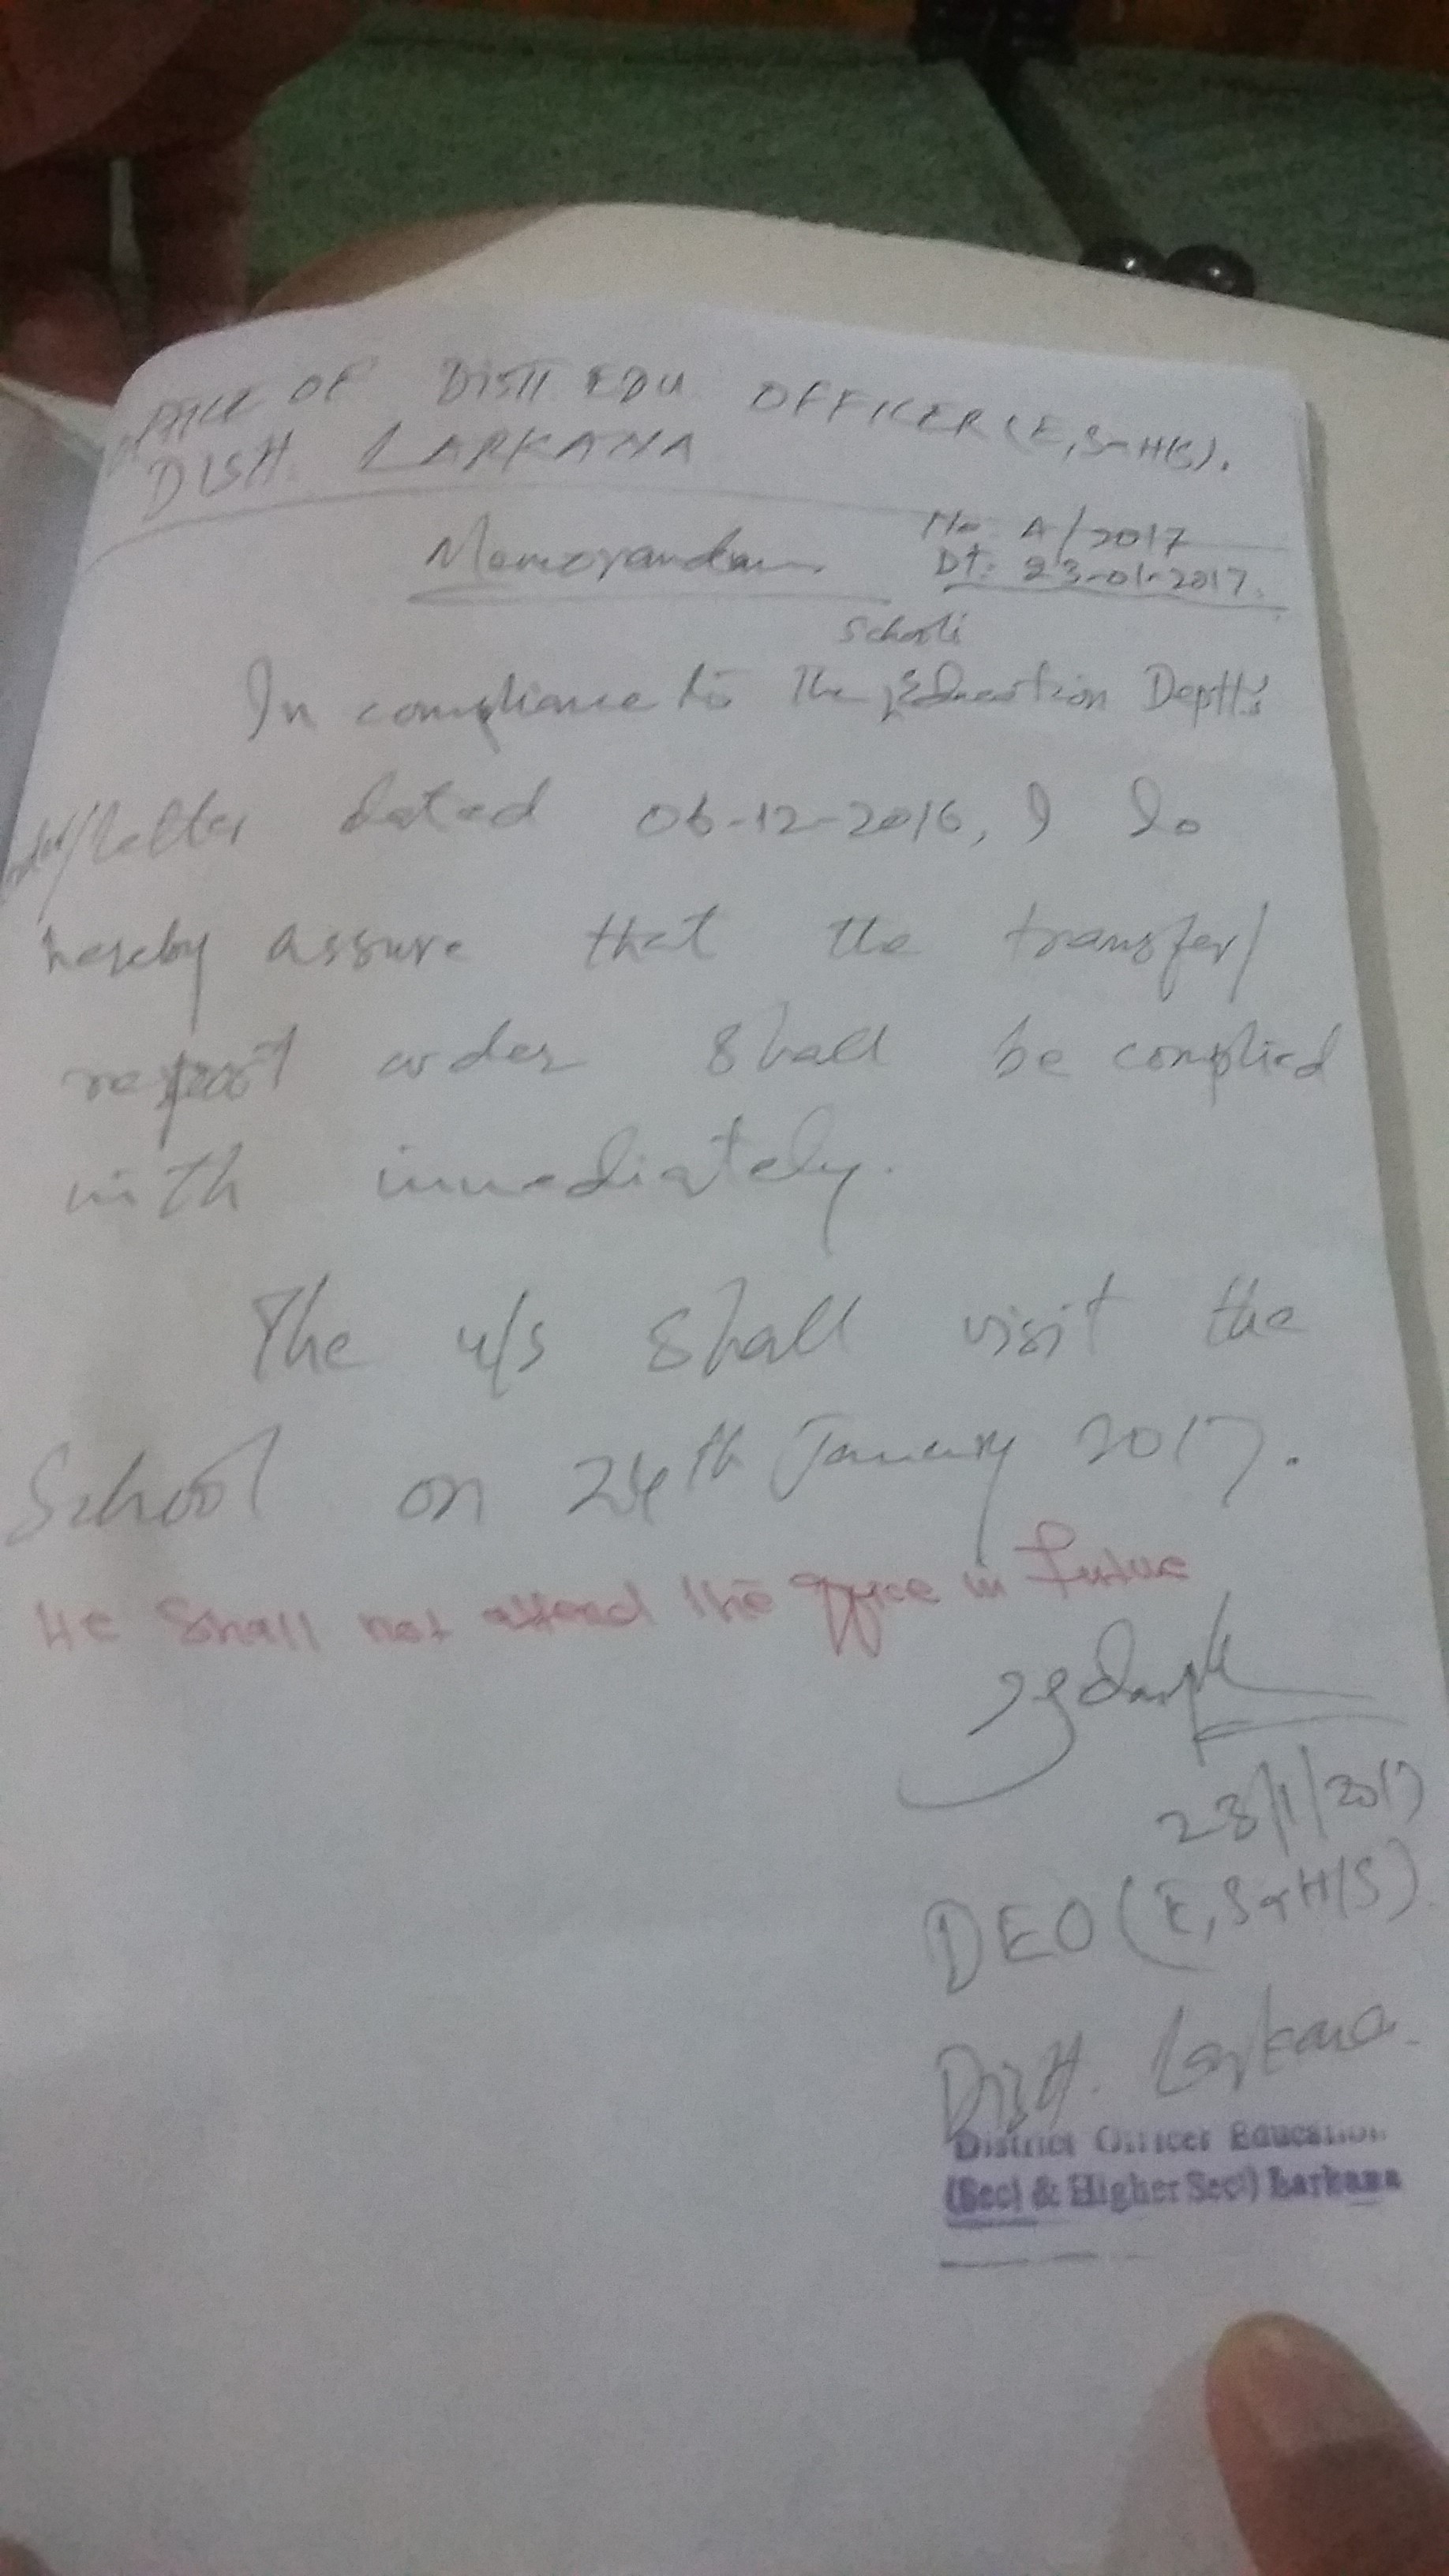 OFFICE OF DISTT EDU OFFICER (E, S & H/S).
DISTT. LARKANA
No. A/2017
Memorandum
Dt: 23-01-2017.
School
In compliance to The Education Deptt's
order/letter dated 06-12-2016, I do
hereby assure that the transfer/
report order shall be complied
with immediately.
The u/s shall visit the
School on 24th January 2017.
He shall not attend the office in future
23/1/2017
DEO (E, S & H/S)
Distt. Larkana
District Officer Education
(Sec) & Higher Sec) Larkana